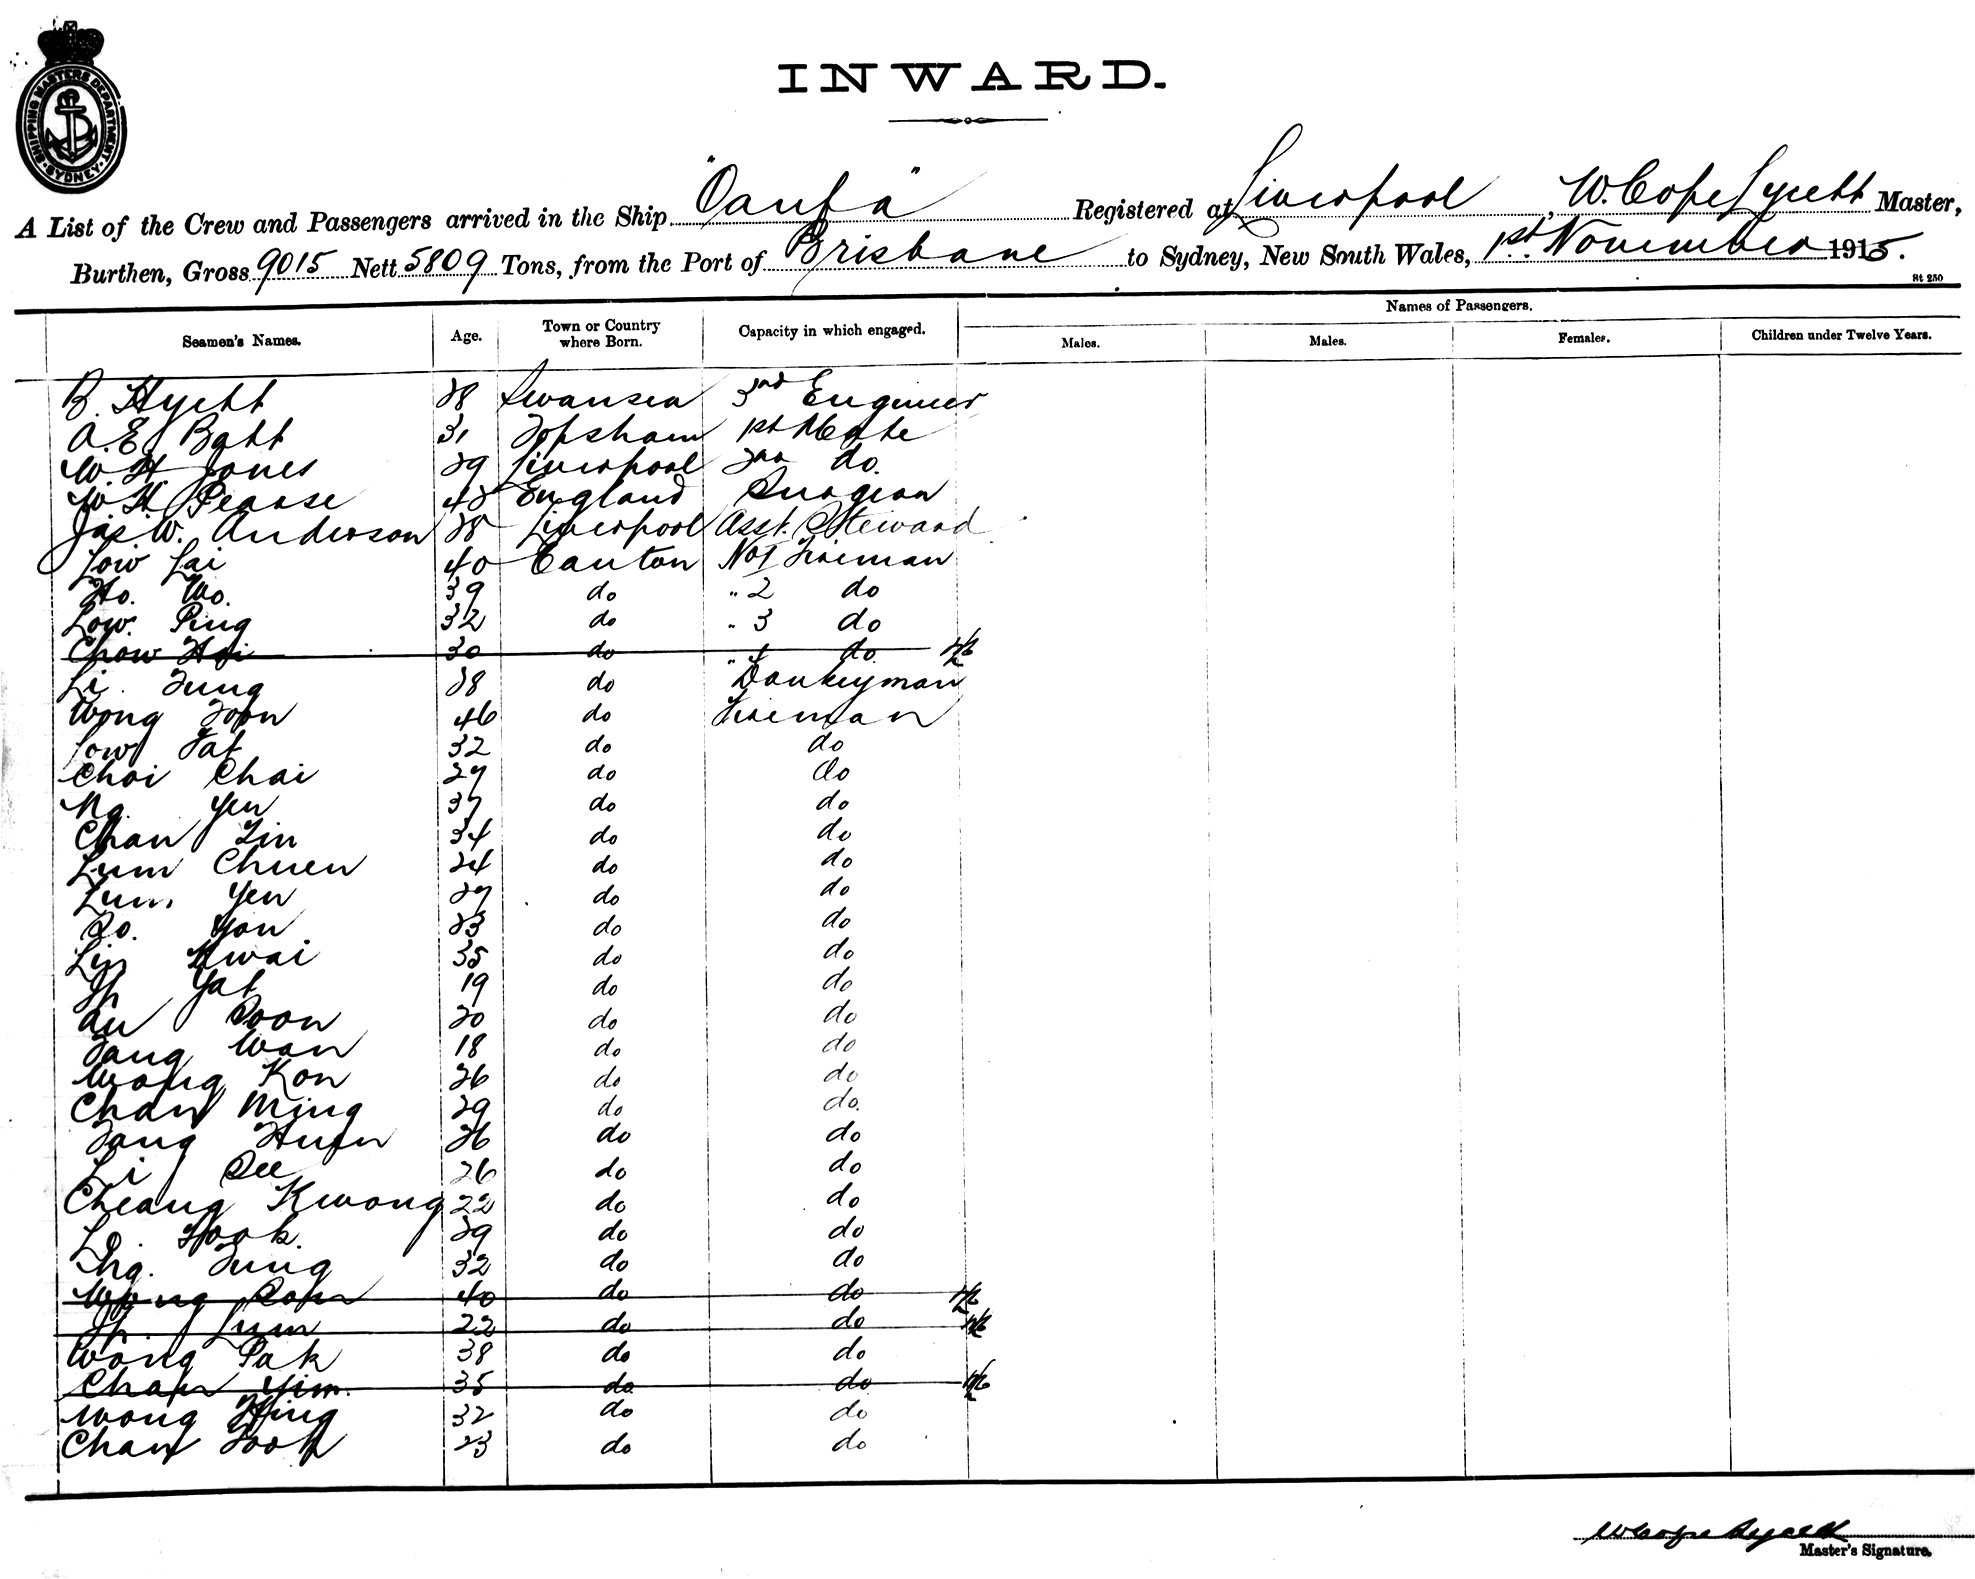 SHIPPING MASTERS DEPARTMENT
SYDNEY
INWARD.
A List of the Crew and Passengers arrived in the Ship "Oanfa" Registered at Liverpool, W. Cope Lycett Master,
Burthen, Gross 9015 Nett 5809 Tons, from the Port of Brisbane to Sydney, New South Wales, 1st November 1915.
St 250
Seamen's Names. Age. Town or Country where Born. Capacity in which engaged. Names of Passengers.
Males. Males. Females. Children under Twelve Years.
B. 28 Swansea 3rd Engineer
A. E. Batt 31 Topsham 1st Mate
W. H. Jones 29 Liverpool 2nd do.
W. H. Pearse 48 England Surgeon
Jas. W. Anderson 28 Liverpool Asst. Steward
Low Lai 40 Canton No 1 Fireman
Ho. Wo. 39 do " 2 do
Low. Ping 32 do " 3 do
Chow Hoi 30 do " 4 do
Li. Tung 38 do Donkeyman
Wong Toon 46 do Fireman
Low Fat 32 do do
Choi Chai 27 do do
Ng. Yen 37 do do
Chan Lin 34 do do
Lum Chuen 24 do do
Lum Yen 27 do do
So. Yon 23 do do
Lin Kwai 35 do do
Ip Yat 19 do do
Au Soon 20 do do
Tang Wan 18 do do
Wong Kon 26 do do
Chan Ming 29 do do.
Tang 26 do do
Li See 26 do do
Cheang Kwong 22 do do
Lo. 29 do do
Ng. Tung 32 do do
Wong 40 do do
Ip. Lum 22 do do
Wong Pak 38 do do
Chan Yim. 35 do do
Wong Hing 32 do do
Chan Took 23 do do
W Cope Lycett
Master's Signature.